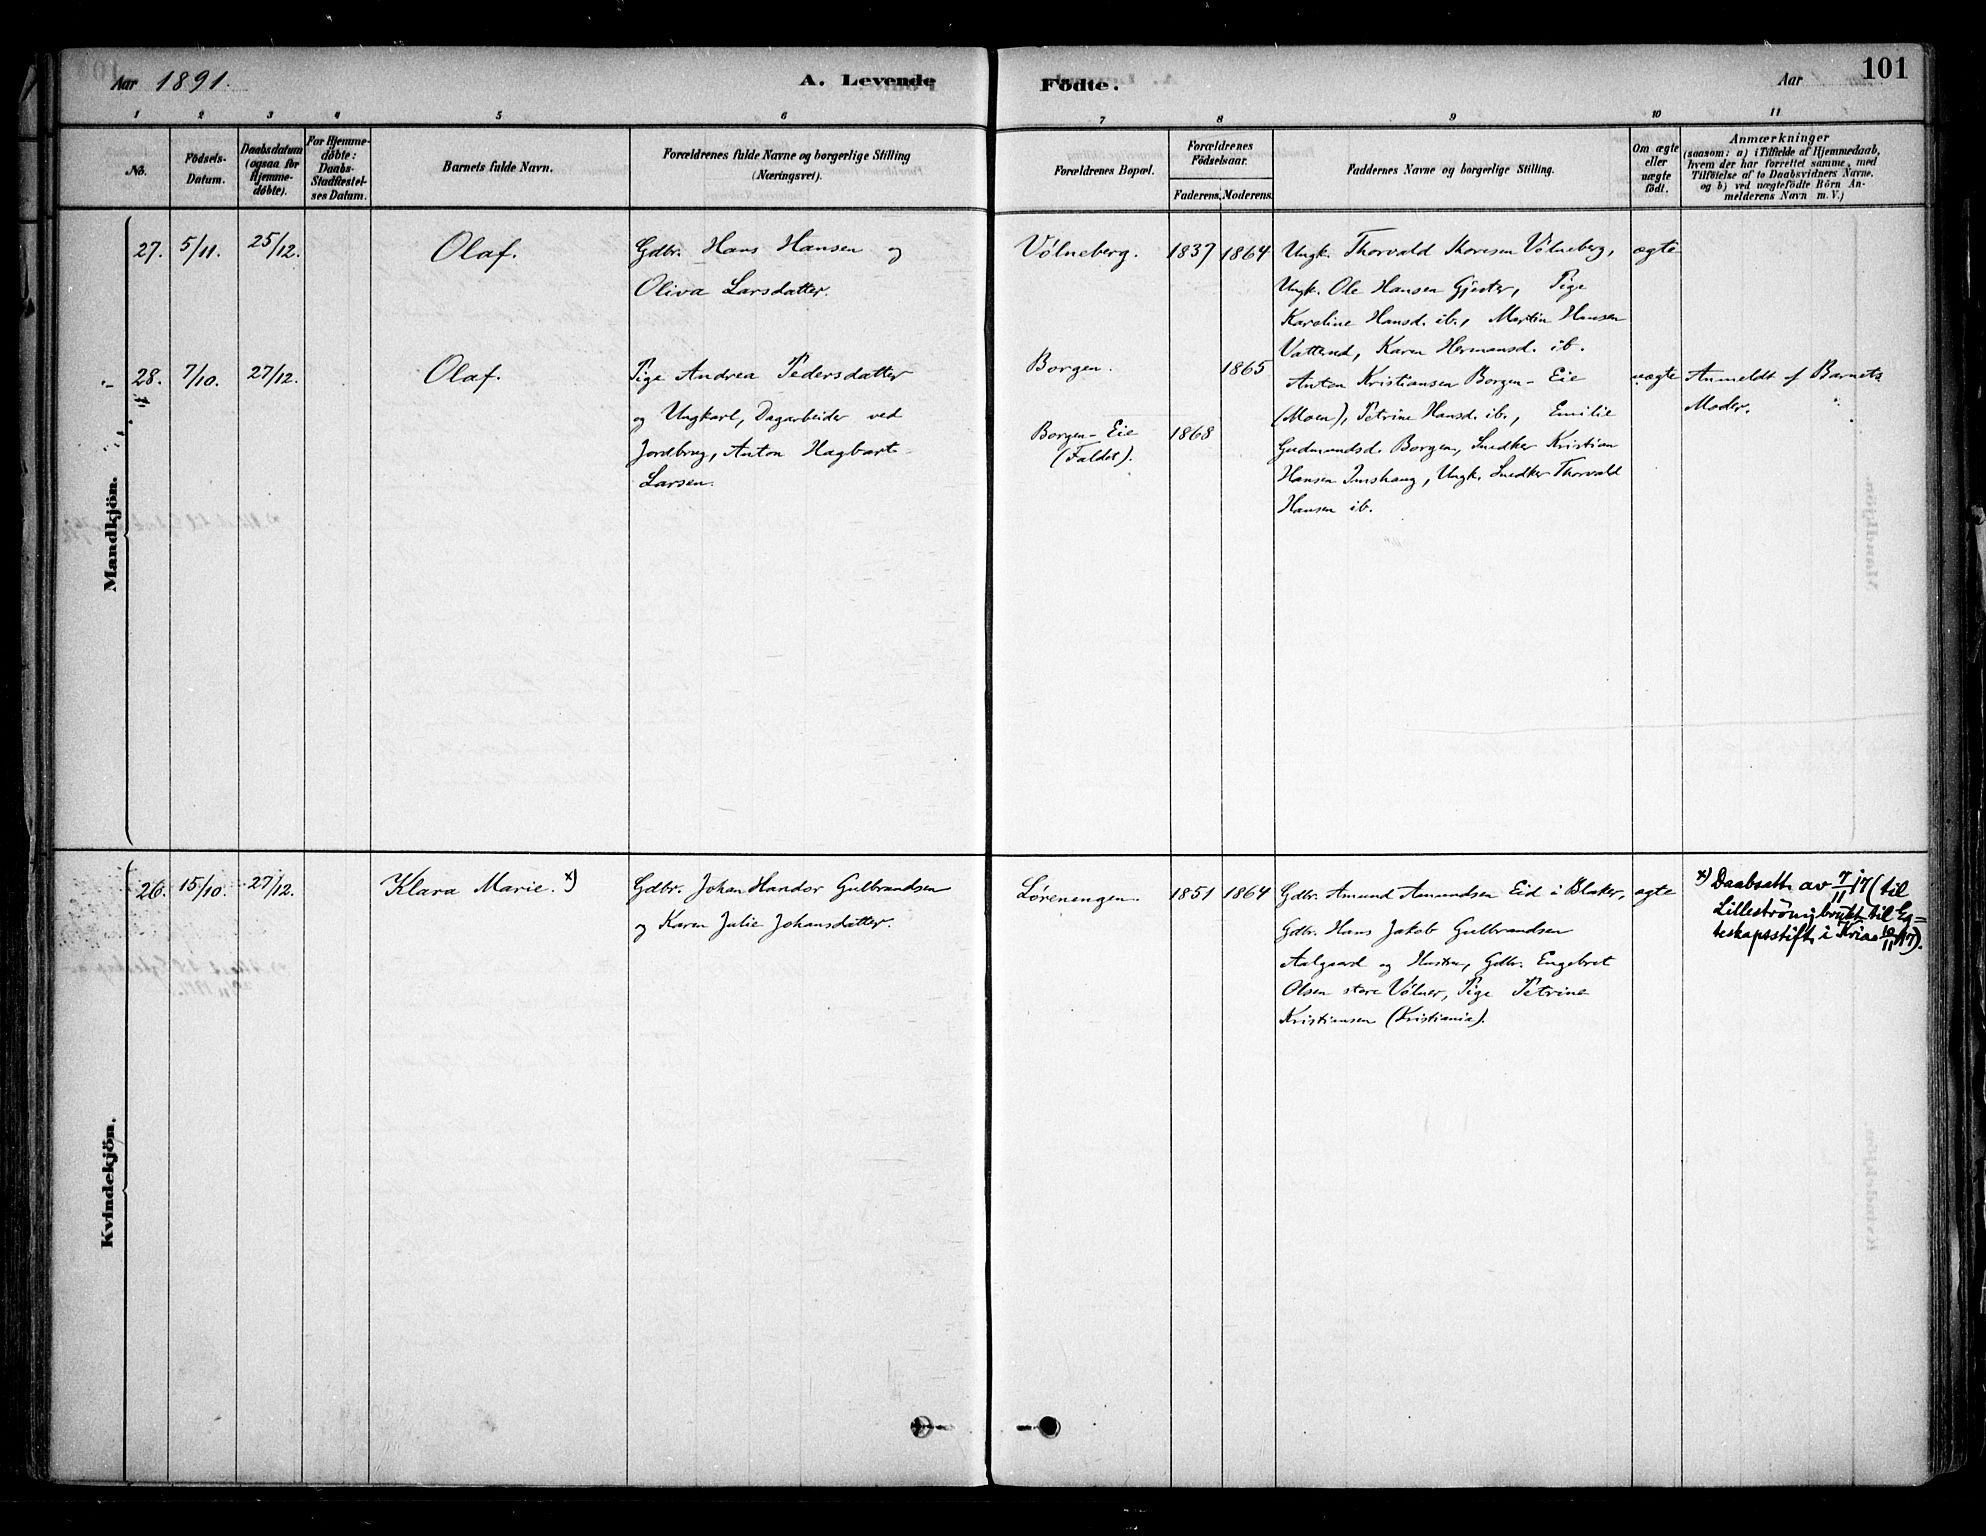 Aar 1891.
A. Levende
Födte.
Aar
101
1 2 3 4 5 6 7 8 9 10 11
No.
Födsels-
Datum.
Daabsdatum
(ogsaa for
Hjemme-
döbte).
For Hjemme-
döbte:
Daabs-
Stadfæstel-
ses Datum.
Barnets fulde Navn.
Forældrenes fulde Navne og borgerlige Stilling
(Næringsvei).
Forældrenes Bopæl.
Forældrenes
Födselsaar.
Faderens. Moderens.
Faddernes Navne og borgerlige Stilling.
Om ægte
eller
uægte
födt.
Anmærkninger
(saasom: a) i Tilfælde af Hjemmedaab,
hvem der har forrettet samme, med
Tilföielse af to Daabsvidners Navne,
og b) ved uægtefödte Börn An-
melderens Navn m. V.)
Mandkjön.
27. 5/11. 25/12.
Olaf.
Gdbr. Hans Hansen og
Oliva Larsdatter.
Völneberg.
1837 1864
Ungk. Thorvald Thoresen Völneberg,
Ungk. Ole Hansen Gjester, Pige
Karoline Hansd. ib., Martin Hansen
Vattend, Karen Hermansd. ib.
ægte
28. 7/10. 27/12.
Olaf.
Pige Andrea Pedersdatter
og Ungkarl, Dagarbeider ved
Jordbrug, Anton Hagbart
Larsen.
Borgen.
1865
Borgen-Eie
(Faldet).
1868
Anton Kristiansen Borgen-Eie
(Moen), Petrine Hansd. ib., Emilie
Gudmundsd. Borgen, Snedker Kristian
Hansen Imshaug, Ungk. Snedker Thorvald
Hansen ib.
uægte
Anmeldt af Barnets
Moder.
Kvindekjön.
26. 15/10. 27/12.
Klara Marie. x)
Gdbr. Johan Handor Gulbrandsen
og Karen Julie Johansdatter.
Lörenengen.
1851 1864
Gdbr. Amund Amundsen Eid i Blaker,
Gdbr. Hans Jakob Gulbrandsen
Aalgaard og Hustru, Gdbr. Engebret
Olsen store Völner, Pige Petrine
Kristiansen (Kristiania).
ægte
x) Daabsatt. av 7/11 17 (til
Lilleström, brukt til Eg-
teskapsstift. i Kria 10/11 17).